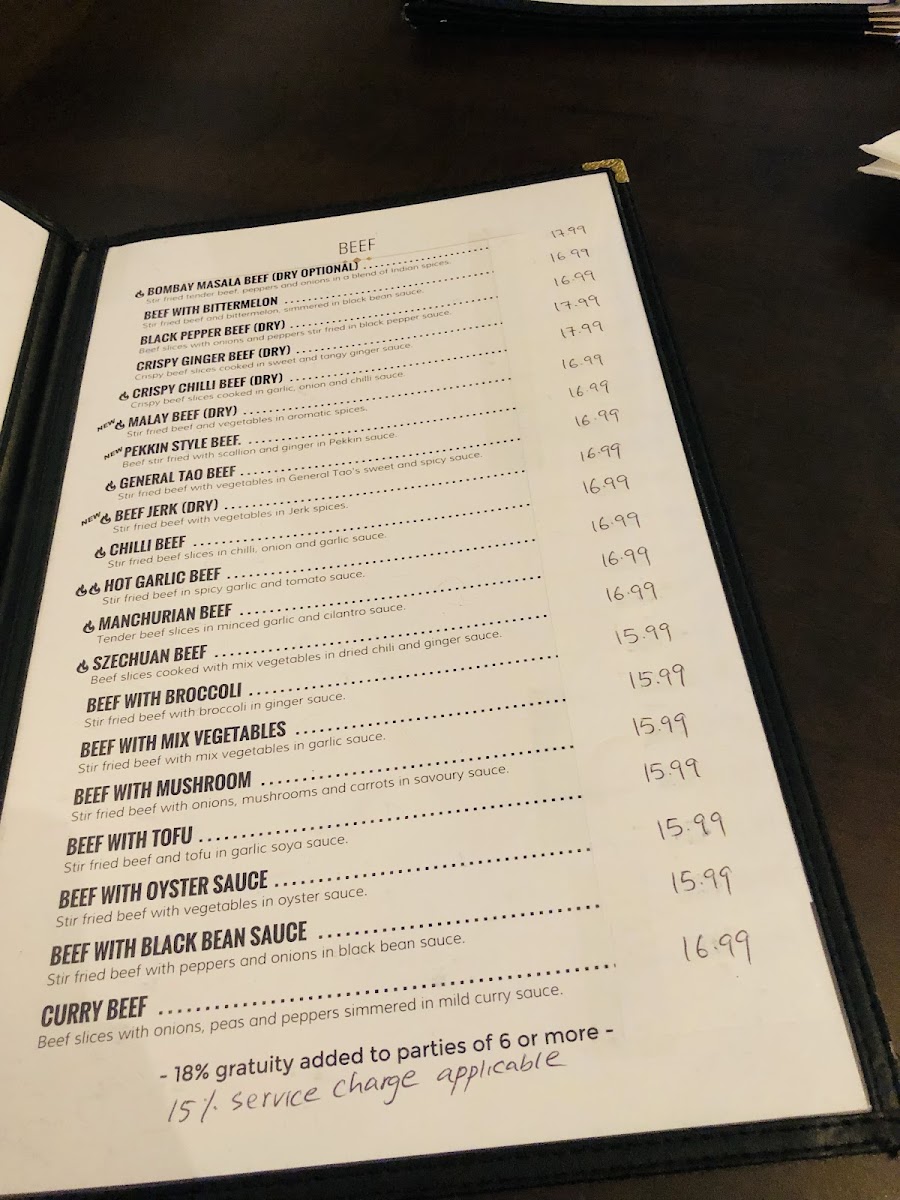 BEEF
BOMBAY MASALA BEEF (DRY OPTIONAL) 17.99
Stir fried tender beef, peppers and onions in a blend of Indian spices.
BEEF WITH BITTERMELON 16.99
Stir fried beef and bittermelon, simmered in black bean sauce.
BLACK PEPPER BEEF (DRY) 16.99
Beef slices with onions and peppers stir fried in black pepper sauce.
CRISPY GINGER BEEF (DRY) 17.99
Crispy beef slices cooked in sweet and tangy ginger sauce.
CRISPY CHILLI BEEF (DRY) 17.99
Crispy beef slices cooked in garlic, onion and chilli sauce.
NEW MALAY BEEF (DRY) 16.99
Stir fried beef and vegetables in aromatic spices.
NEW PEKKIN STYLE BEEF. 16.99
Beef stir fried with scallion and ginger in Pekkin sauce.
GENERAL TAO BEEF 16.99
Stir fried beef with vegetables in General Tao's sweet and spicy sauce.
NEW BEEF JERK (DRY) 16.99
Stir fried beef with vegetables in Jerk spices.
CHILLI BEEF 16.99
Stir fried beef slices in chilli, onion and garlic sauce.
HOT GARLIC BEEF 16.99
Stir fried beef in spicy garlic and tomato sauce.
MANCHURIAN BEEF 16.99
Tender beef slices in minced garlic and cilantro sauce.
SZECHUAN BEEF 16.99
Beef slices cooked with mix vegetables in dried chili and ginger sauce.
BEEF WITH BROCCOLI 15.99
Stir fried beef with broccoli in ginger sauce.
BEEF WITH MIX VEGETABLES 15.99
Stir fried beef with mix vegetables in garlic sauce.
BEEF WITH MUSHROOM 15.99
Stir fried beef with onions, mushrooms and carrots in savoury sauce.
BEEF WITH TOFU 15.99
Stir fried beef and tofu in garlic soya sauce.
BEEF WITH OYSTER SAUCE 15.99
Stir fried beef with vegetables in oyster sauce.
BEEF WITH BLACK BEAN SAUCE 15.99
Stir fried beef with peppers and onions in black bean sauce.
CURRY BEEF 16.99
Beef slices with onions, peas and peppers simmered in mild curry sauce.
- 18% gratuity added to parties of 6 or more -
15% service charge applicable